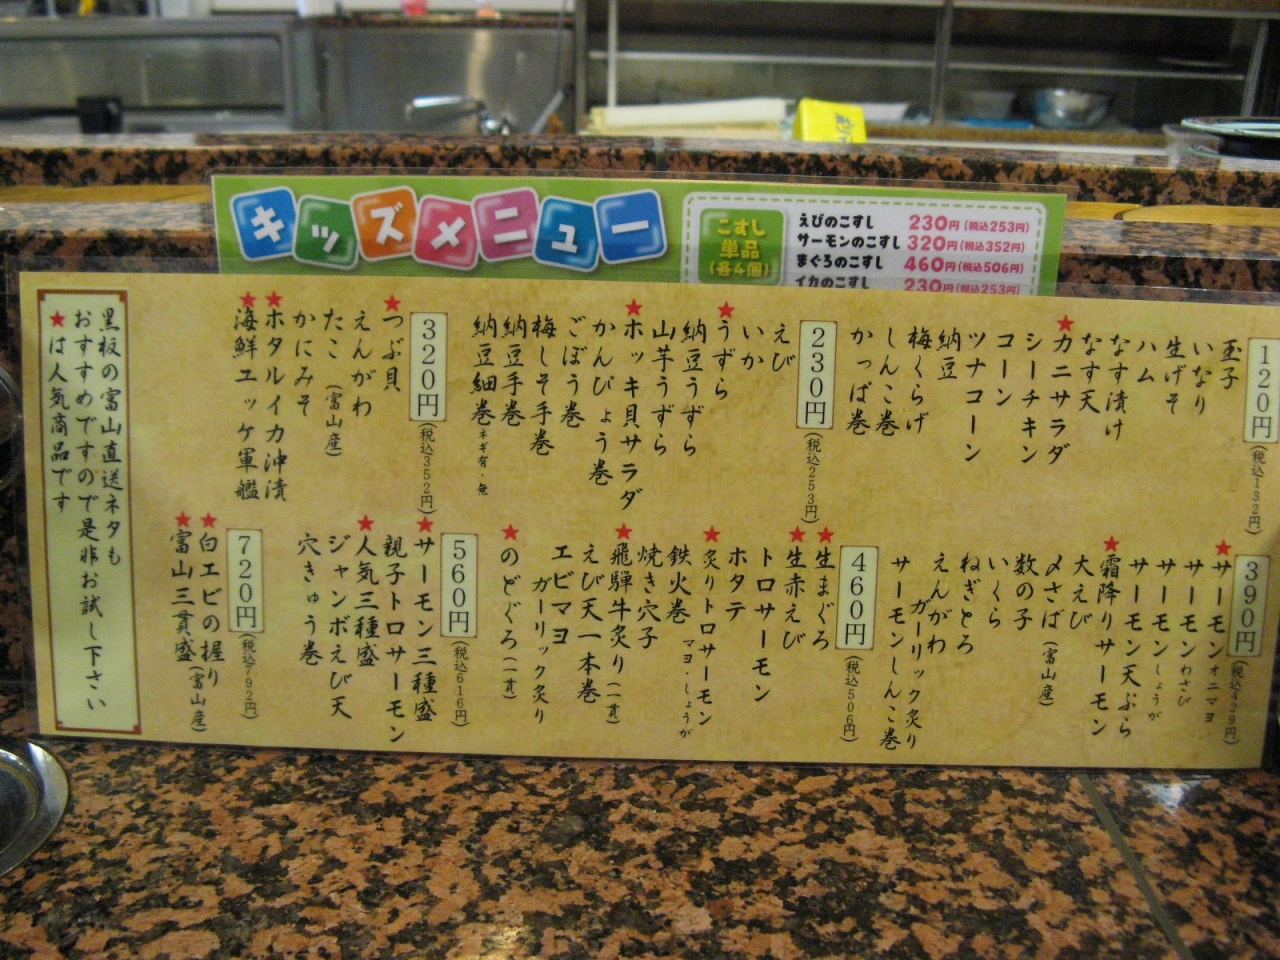 キッズメニュー
こすし
単品
(各4個)
えびのこすし 230円(税込253円)
サーモンのこすし 320円(税込352円)
まぐろのこすし 460円(税込506円)
イカのこすし 230円(税込253円)
120円(税込132円)
玉子
いなり
生げそ
ハム
なす漬け
なす天
★カニサラダ
シーチキン
コーン
ツナコーン
納豆
梅くらげ
しんこ巻
かっぱ巻
230円(税込253円)
えび
いか
★うずら
納豆うずら
山芋うずら
★ホッキ貝サラダ
かんぴょう巻
ごぼう巻
梅しそ手巻
納豆手巻
納豆細巻 ネギ有・無
320円(税込352円)
★つぶ貝
えんがわ
たこ(富山産)
かにみそ
★ホタルイカ沖漬
★海鮮ユッケ軍艦
390円(税込429円)
★サーモンオニマヨ
サーモンわさび
サーモンしょうが
サーモン天ぷら
★霜降りサーモン
大えび
〆さば(富山産)
数の子
いくら
ねぎとろ
えんがわ
ガーリック炙り
サーモンしんこ巻
460円(税込506円)
★生まぐろ
★生赤えび
トロサーモン
ホタテ
★炙りトロサーモン
マヨ・しょうが
鉄火巻
焼き穴子
★飛騨牛炙り(一貫)
えび天一本巻
エビマヨ
ガーリック炙り
★のどぐろ(一貫)
560円(税込616円)
★サーモン三種盛
親子トロサーモン
★人気三種盛
ジャンボえび天
穴きゅう巻
720円(税込792円)
★白エビの握り
★富山三貫盛(富山産)
黒板の富山直送ネタも
おすすめですので是非お試し下さい
★は人気商品です